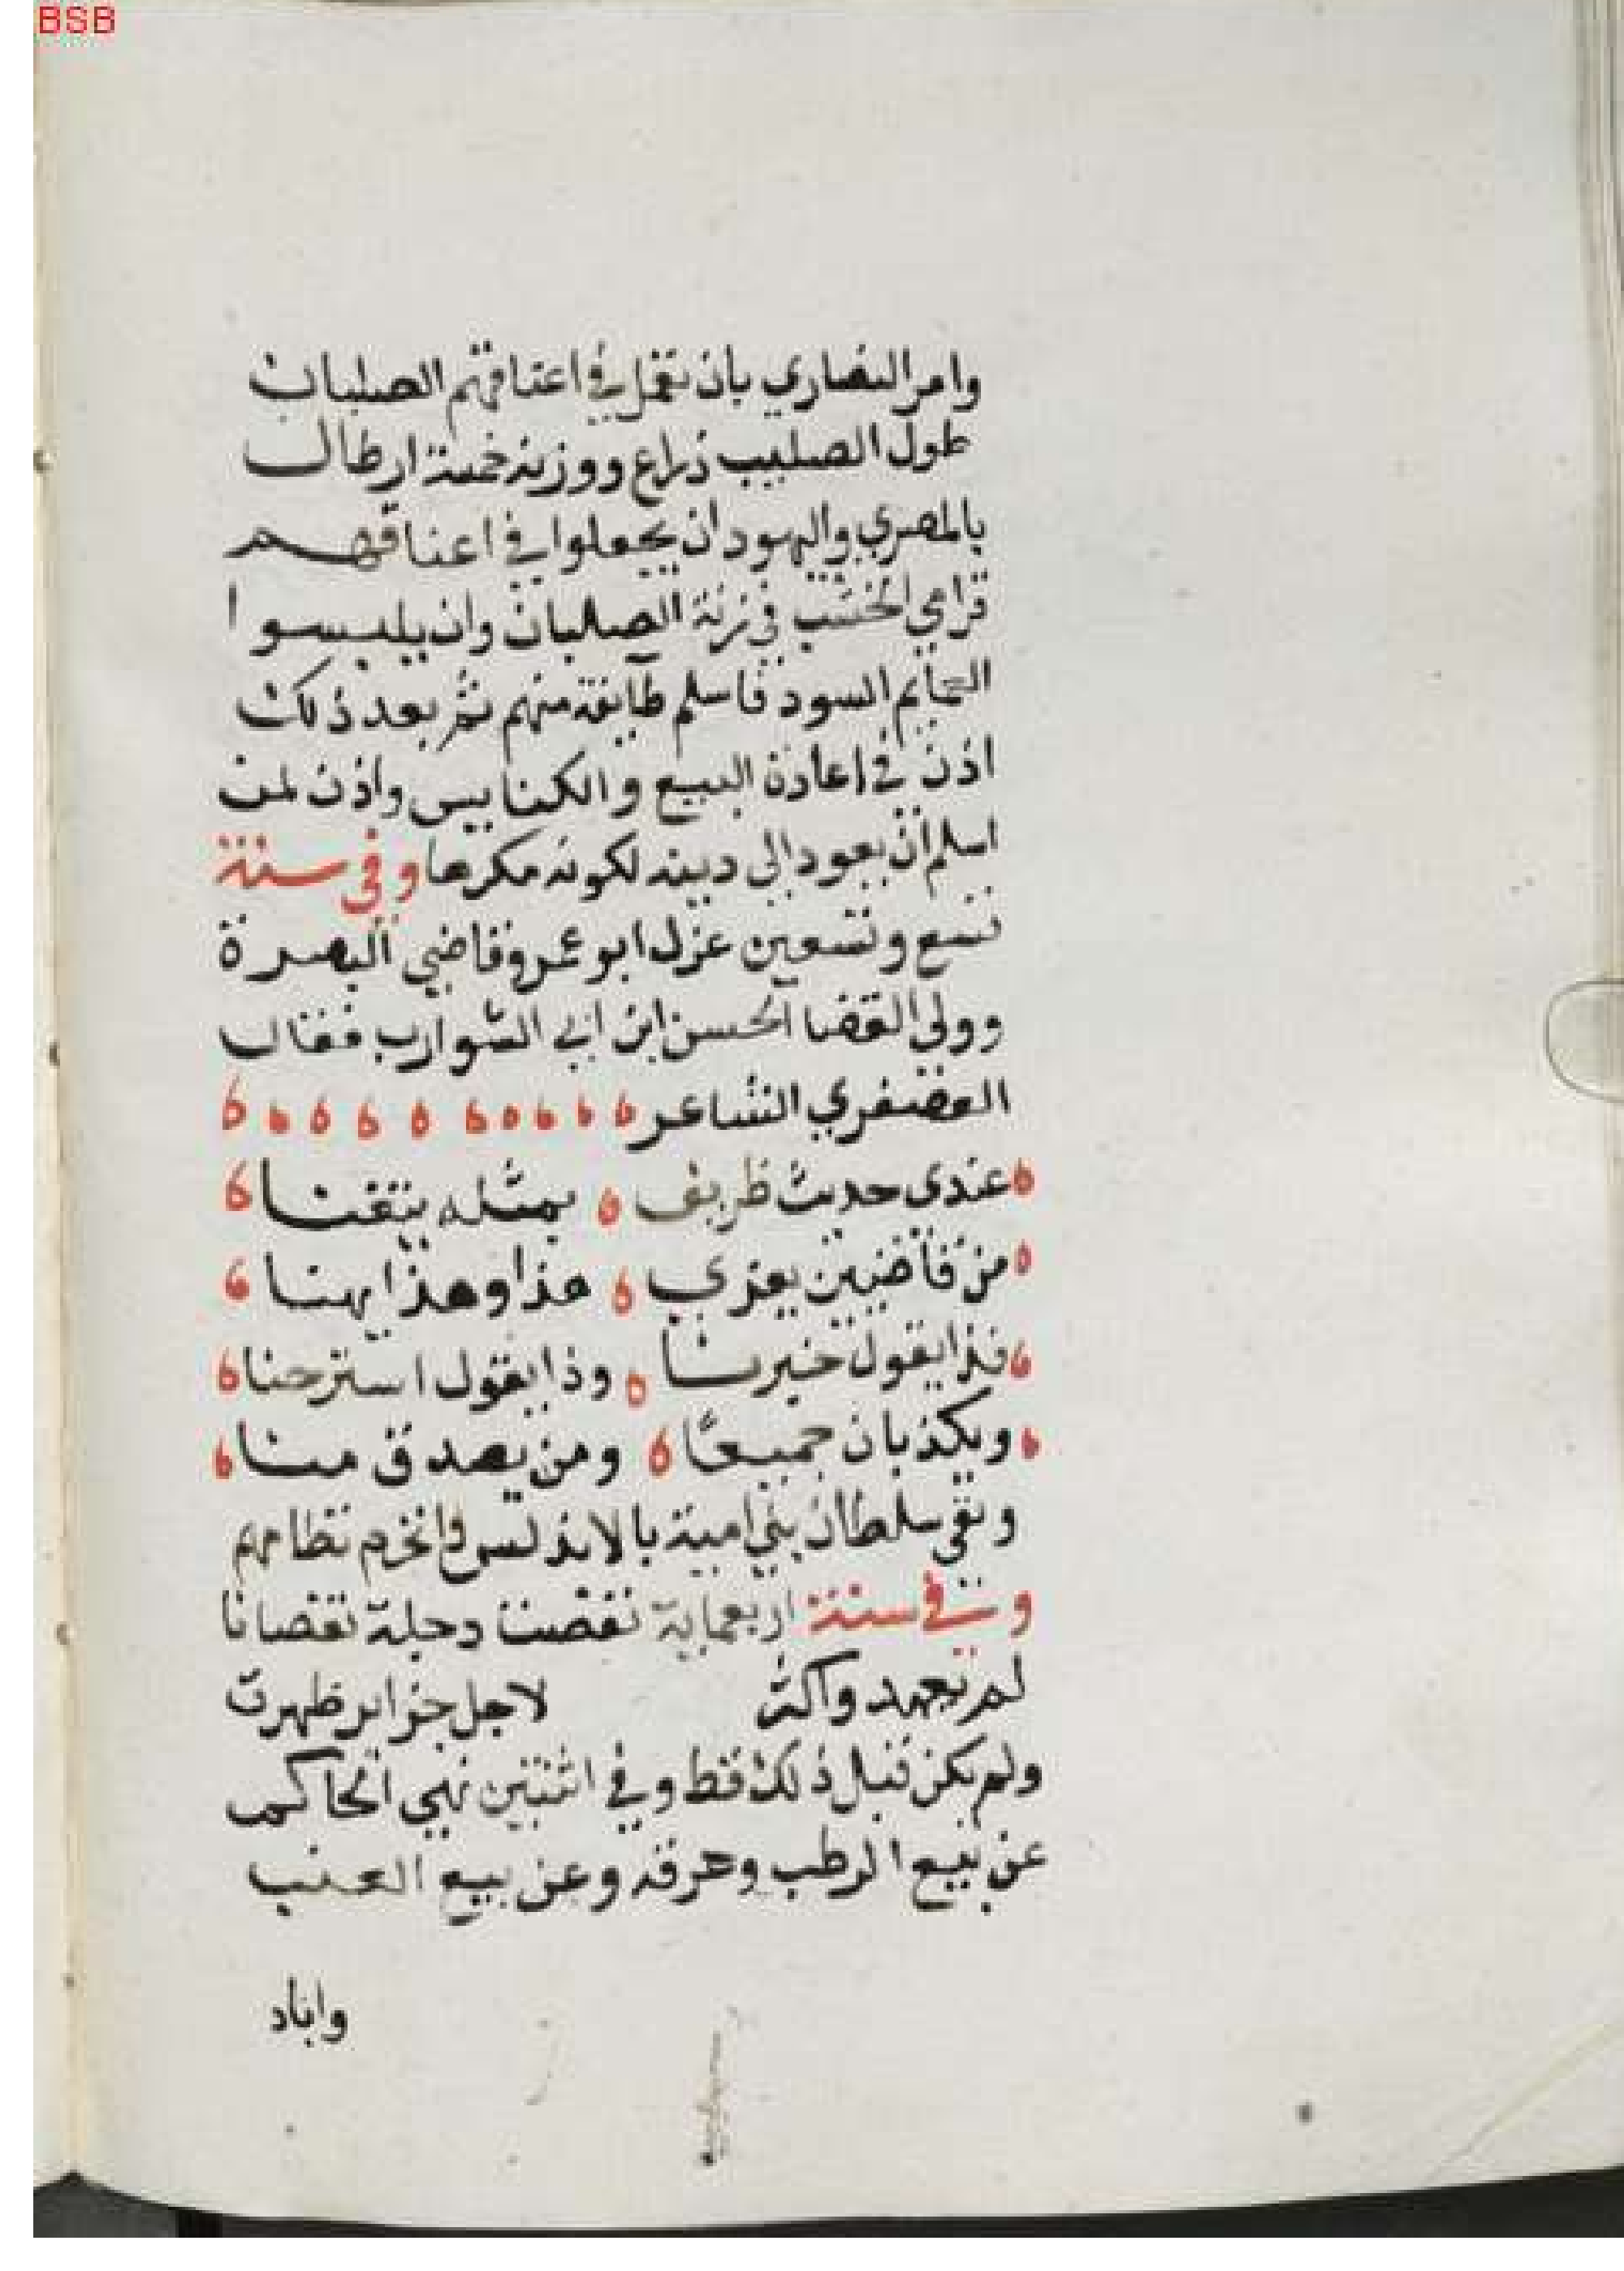 BSB
وامر النصاري بان تعمل في اعناقهم الصلبان
طول الصليب ذراع ووزنه خمسة ارطال
بالمصري واليهود ان يجعلوا في اعناقهم
قرامي الخشب في زنة الصلبان وان يلبسوا
العمايم السود فاسلم طايفة منهم ثم بعد ذلك
اذن في اعادة البيع والكنايس واذن لمن
اسلم ان يعود الي دينه لكونه مكرها وفي سنة
تسع وتسعين عزل ابو عمرو قاضي البصرة
وولي القضا الحسن ابن ابي الشوارب فقال
العصفري الشاعر
عندي حديث ظريف بمثله يتغنا
من قاضيين يعزي هذا وهذا يهنا
فذا يقول جبرنا وذا يقول استرحنا
ويكذبان جميعا ومن يصدق منا
سلطان بني امية بالاندلس وانخرم نظامهم
وفي سنة اربعماية نقصت دجلة نقصانا
لم تعهد واكثر لاجل جزاير ظهرت
ولم يكن قبل ذلك قط وفي اثنتين نهي الحاكم
عن بيع الرطب وحرقه وعن بيع العنب
واباد